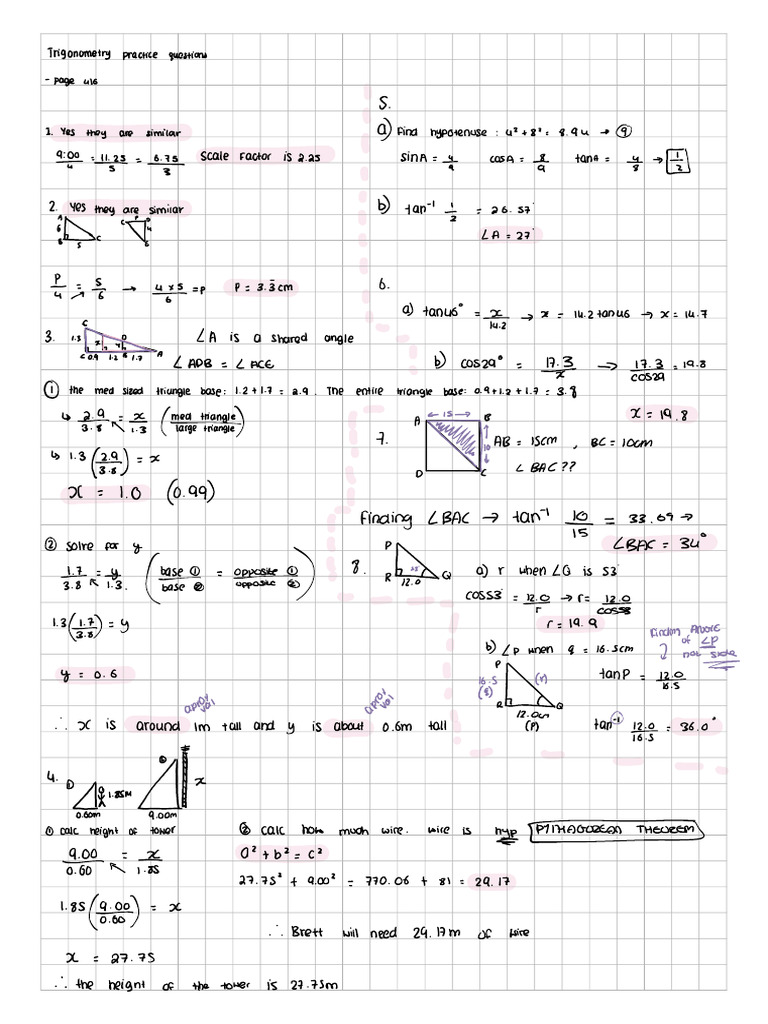 Trigonometry practice questions
- page 416
1. Yes they are similar
9.00/4 = 11.25/5 = 6.75/3 Scale Factor is 2.25
2. Yes they are similar
A
6
B 5 C
C P D
4
E
P/4 = 5/6 → 4×5/6 = P P = 3.3̄ cm
3.
C
1.3 x D y
C 0.9 1.2 B 1.7 A
∠A is a shared angle
∠ADB = ∠ACE
① the med sized triangle base: 1.2 + 1.7 = 2.9. The entire triangle base: 0.9 + 1.2 + 1.7 = 3.8
↳ 2.9/3.8 = x/1.3 (med triangle/large triangle)
↳ 1.3(2.9/3.8) = x
x = 1.0 (0.99)
② solve for y
1.7/3.8 = y/1.3. (base ①/base ② = opposite ①/opposite ②)
1.3(1.7/3.8) = y
y = 0.6
∴ x is around 1m tall and y is about 0.6m tall
4.
① 1.85M
0.60m
② x
9.00m
① calc height of tower
9.00/0.60 = x/1.85
1.85(9.00/0.60) = x
x = 27.75
∴ the height of the tower is 27.75m
② calc how much wire. wire is hyp PYTHAGOREAN THEOREM
a² + b² = c²
27.75² + 9.00² = 770.06 + 81 = 29.17
∴ Brett will need 29.17m of wire
5.
a) Find hypotenuse: 4² + 8² = 8.94 → ⑨
sinA = 4/9 cosA = 8/9 tanA = 4/8 → 1/2
b) tan⁻¹ 1/2 = 26.57°
∠A = 27°
6.
a) tan46° = x/14.2 → x = 14.2tan46 → x = 14.7
b) cos29° = 17.3/x → 17.3/cos29 = 19.8
x = 19.8
7.
A ← 15 → B
10
D C
AB = 15cm , BC = 10cm
∠BAC??
Finding ∠BAC → tan⁻¹ 10/15 = 33.69 →
∠BAC = 34°
8.
P
R 12.0 Q
a) r when ∠Q is 53°
cos53° = 12.0/r → r = 12.0/cos53
r = 19.9
b) ∠P when q = 16.5cm
P
16.5 (q) (r)
R 12.0cm Q
(P)
finding ANGLE
of ∠P
not side
tanP = 12.0/16.5
tan⁻¹ 12.0/16.5 = 36.0°